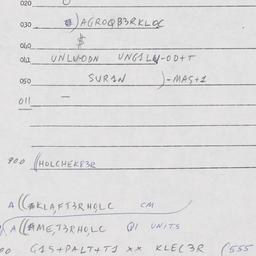 020
030 )AGROQB3RKLOC
040 $
041 UNLWODN UNG1LW-OD+T
050 SUR1N )-MAS+1
011 —
900 (HOLCHEKP3R
A((#KLA,FT3RHO,LC CM
A((#ME,T3RHO,LC Q1 UNITS
G1S+PALT+T1 xx KLEC3R (555